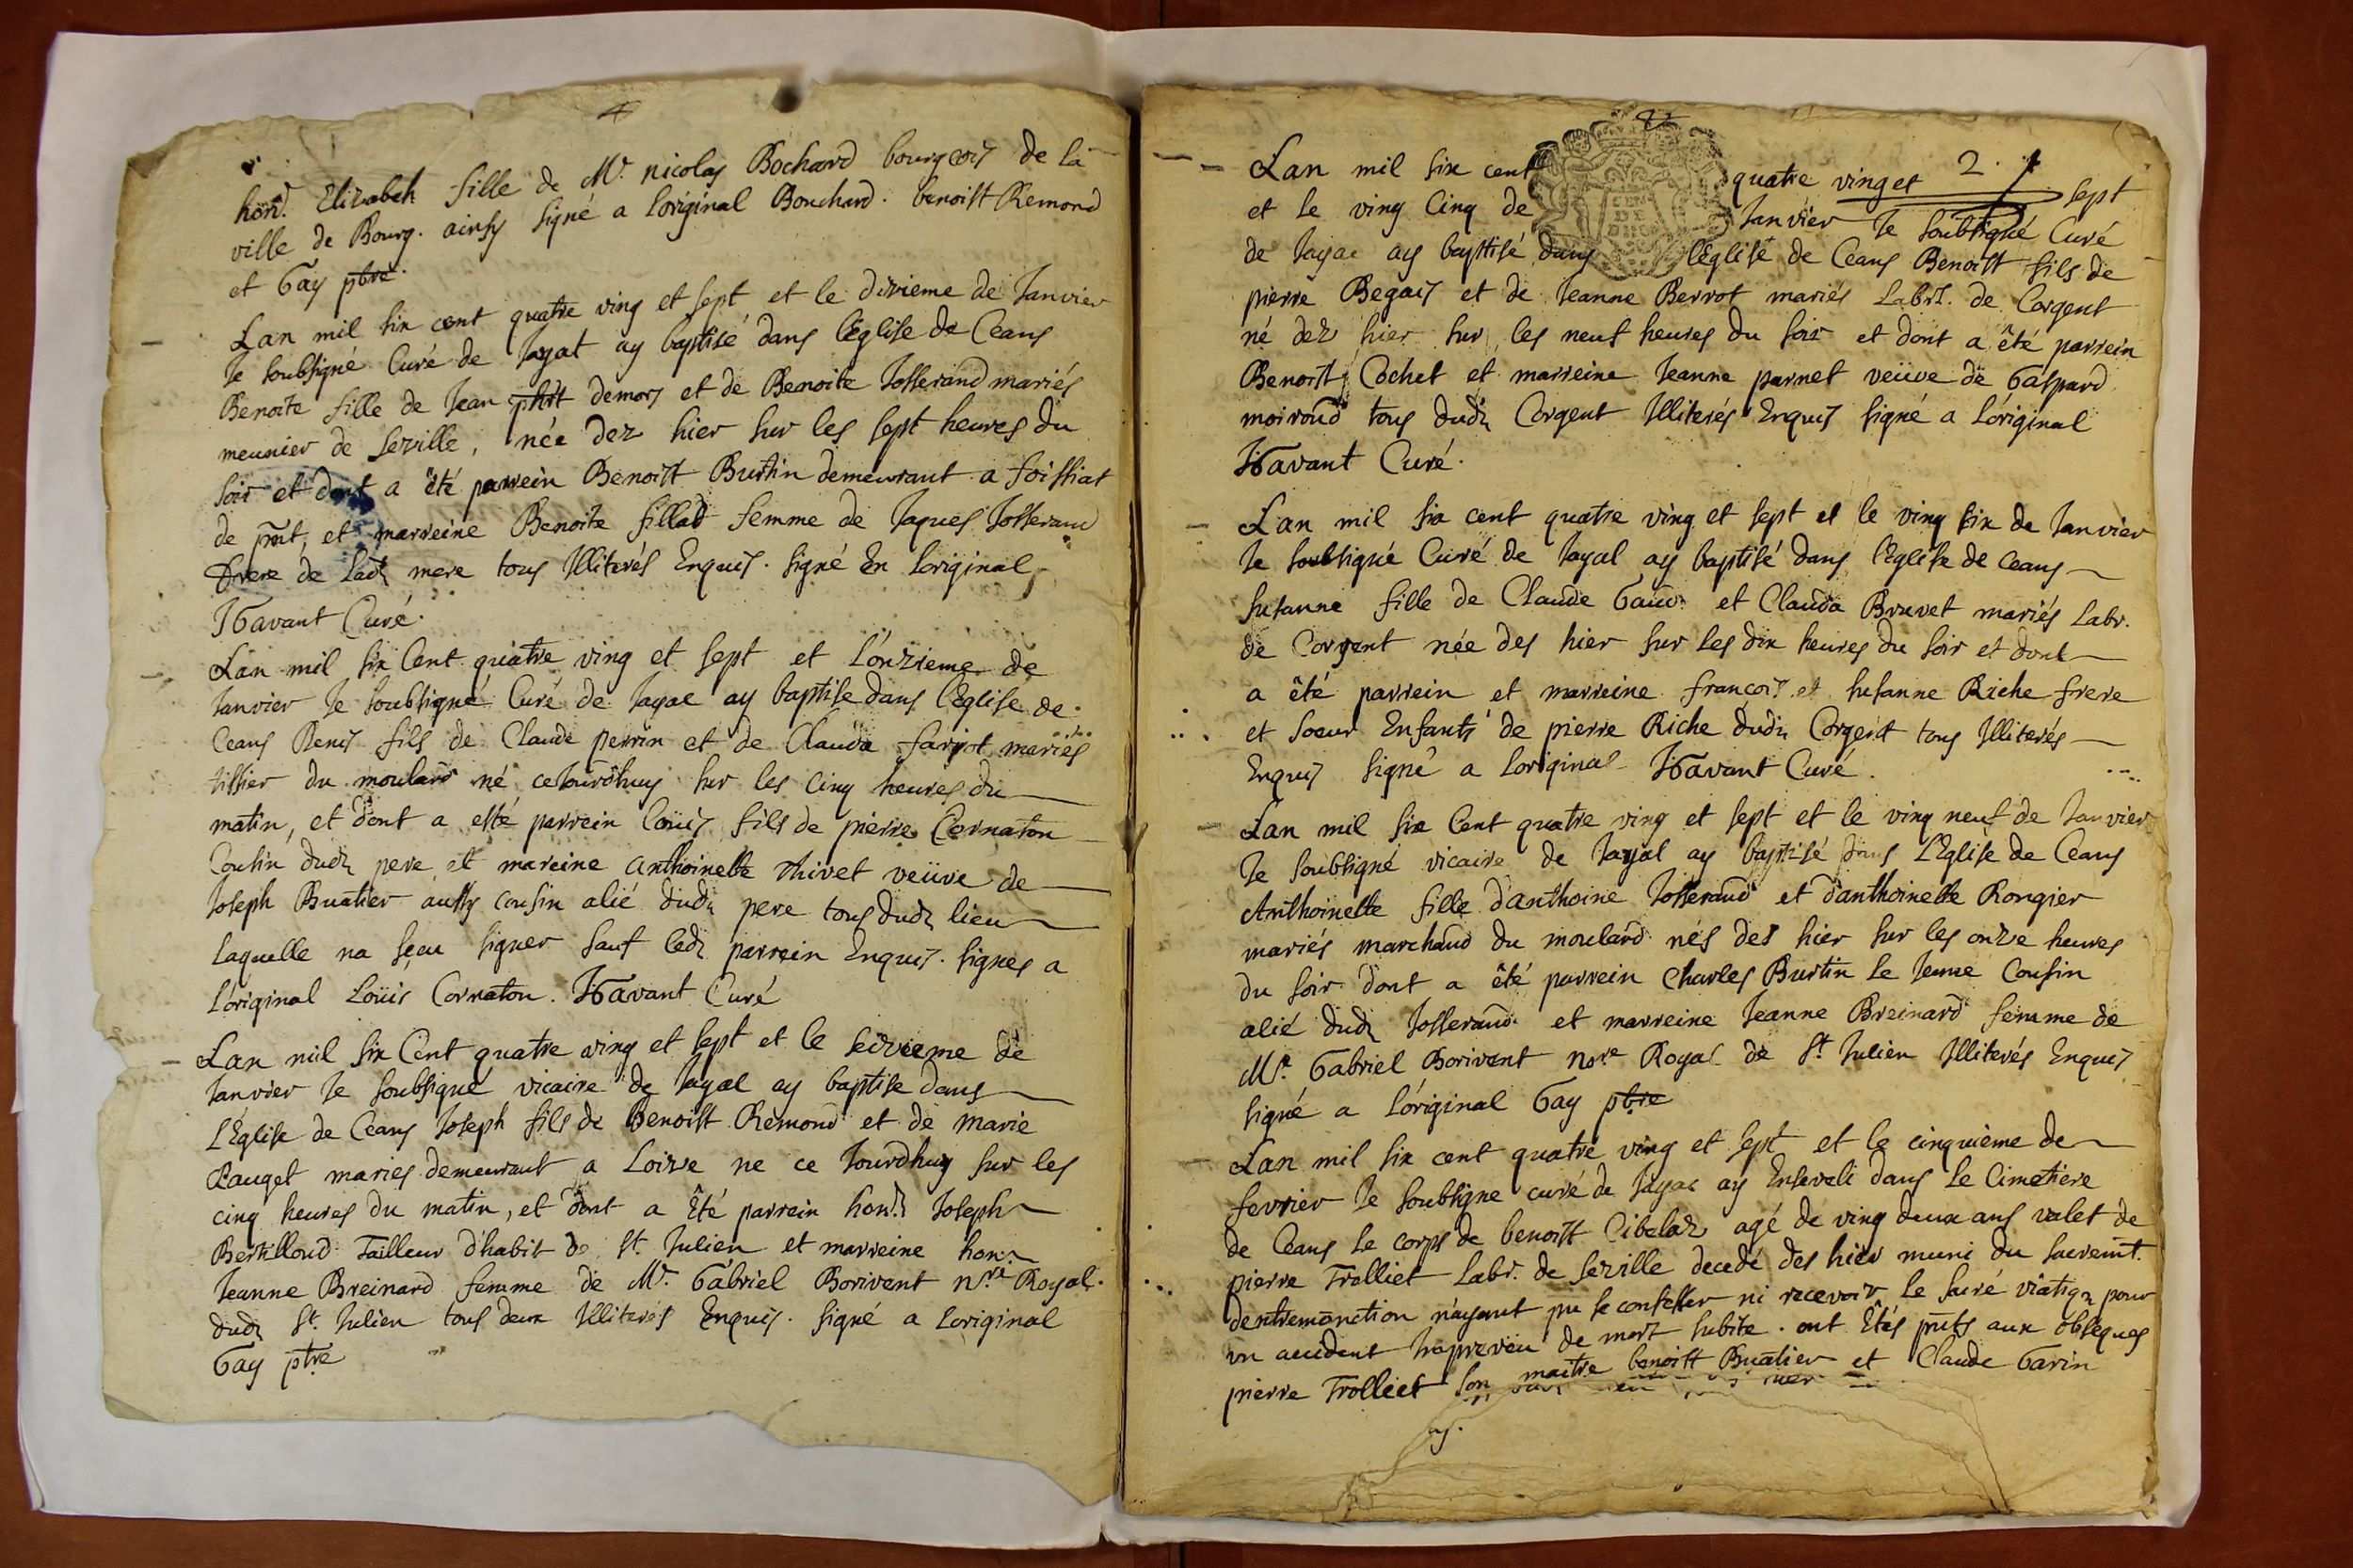 hon.^d Elizabeh fille de M^r. nicolas Bochard bourgeois de la
ville de Bourg. ainsy signé a loriginal Bouchard. benoist Remond
et Gay ptre.
Lan mil six cent quatre ving et sept et le dixieme de Janvier
Je soubsigné Curé de Jayat ay baptisé dans l'Eglise de Ceans
Benoite fille de Jean demors et de Benoite Josserand mariés
meunier de Sezille, née dez hier sur les sept heures du
soir et dont a êté parrein Benoist Burtin demeurant a foissiat
de pñt, et marreine Benoite fillad femme de Jaques Josserand
frere de lad^e mere tous Illiterés Enquis. signé En loriginal
Havant Curé.
Lan mil six Cent quatre ving et sept et l'onzieme de
Janvier Je soubsigné Curé de Jayac ay baptise dans l'Eglise de
Ceans Denis fils de Claude perrin et de Clauda farjot mariés
tissier du moulard né cejourdhuy sur les cinq heures du
matin, et dont a esté parrein loüis fils de pierre Cornaton
Cousin dud^t pere, et mareine anthoinette thivet veüve de
Joseph Buatier aussy cousin alié dud^t pere tous dud^t lieu
laquelle na sçeu signer sauf led^t parrein Enquis. signés a
l'original Loüis Cornaton. Havant Curé
Lan mil six Cent quatre ving et sept et le seizieme de
Janvier Je soubsigné vicaire de Jayac ay baptise dans
l'Eglise de Ceans Joseph fils de Benoist Remond et de Marie
Pauget mariés demeurant a Loize ne ce Jourdhuy sur les
cinq heures du matin, et dont a Eté parrein hon.^d Joseph
Bertilloud Tailleur d'habit de S^t. Julien et marreine hon.
Jeanne Breinard femme de M^r. Gabriel Borivent n^re Royal.
dud^t S^t. Julien tous deux Illiterés Enquis. signé a Loriginal
Gay ptre
2.
Lan mil six cent quatre ving et sept
et le ving Cinq de Janvier Je soubsigné Curé
de Jayac ay baptisé dans l'Eglise de Ceans Benoist fils de
pierre Begais et de Jeanne Berrot mariés Labr. de Corgent
né dez hier sur les neuf heures du soir et dont a êté parrein
Benoist Cochet et marreine Jeanne parnet veüve de Gaspard
moiroud tous dud^t Corgent Illiterés Enquis signé a l'original
Havant Curé.
Lan mil six cent quatre ving et sept et le ving six de Janvier
Je soubsigné Curé de Jayal ay baptisé dans l'Eglise de Ceans
susanne fille de Claude et Clauda Bruvet mariés Labr.
de Corgent née des hier sur les dix heures du soir et dont
a êté parrein et marreine françois et susanne Riche frere
et soeur Enfants de pierre Riche dud^t Corgent tous Illiterés
Enquis signé a loriginal Havant Curé.
Lan mil six Cent quatre ving et sept et le ving neuf de Janvier
Je soubsigné vicaire de Jayal ay baptisé dans l'Eglise de Ceans
Anthoinette fille d'anthoine Josserand et d'anthoinette Rongier
mariés marchand du moulard nés des hier sur les onze heures
du soir dont a êté parrein Charles Burtin le Jeune Cousin
alié dud^t Josserand et marreine Jeanne Breinard femme de
M^r. Gabriel Borivent No^re Royal de S^t. Julien Illiterés Enquis
signé a l'original Gay ptre
Lan mil six cent quatre ving et sept et le cinquième de
fevrier Je soubsigne curé de Jayac ay Enseveli dans le Cimetiere
de Ceans le corps de benoist Cibelaz agé de ving deux ans valet de
pierre Trolliet Labr. de Sezille decedé des hier muni du sacremt.
dentremonction n'ayant pu se confesser ni recevoir le sacré viatiq^e pour
un accident Inpreveu de mort subite. ont Etés pñts aux obseques
pierre Trolliet son maitre benoist Buatier et Claude Garin